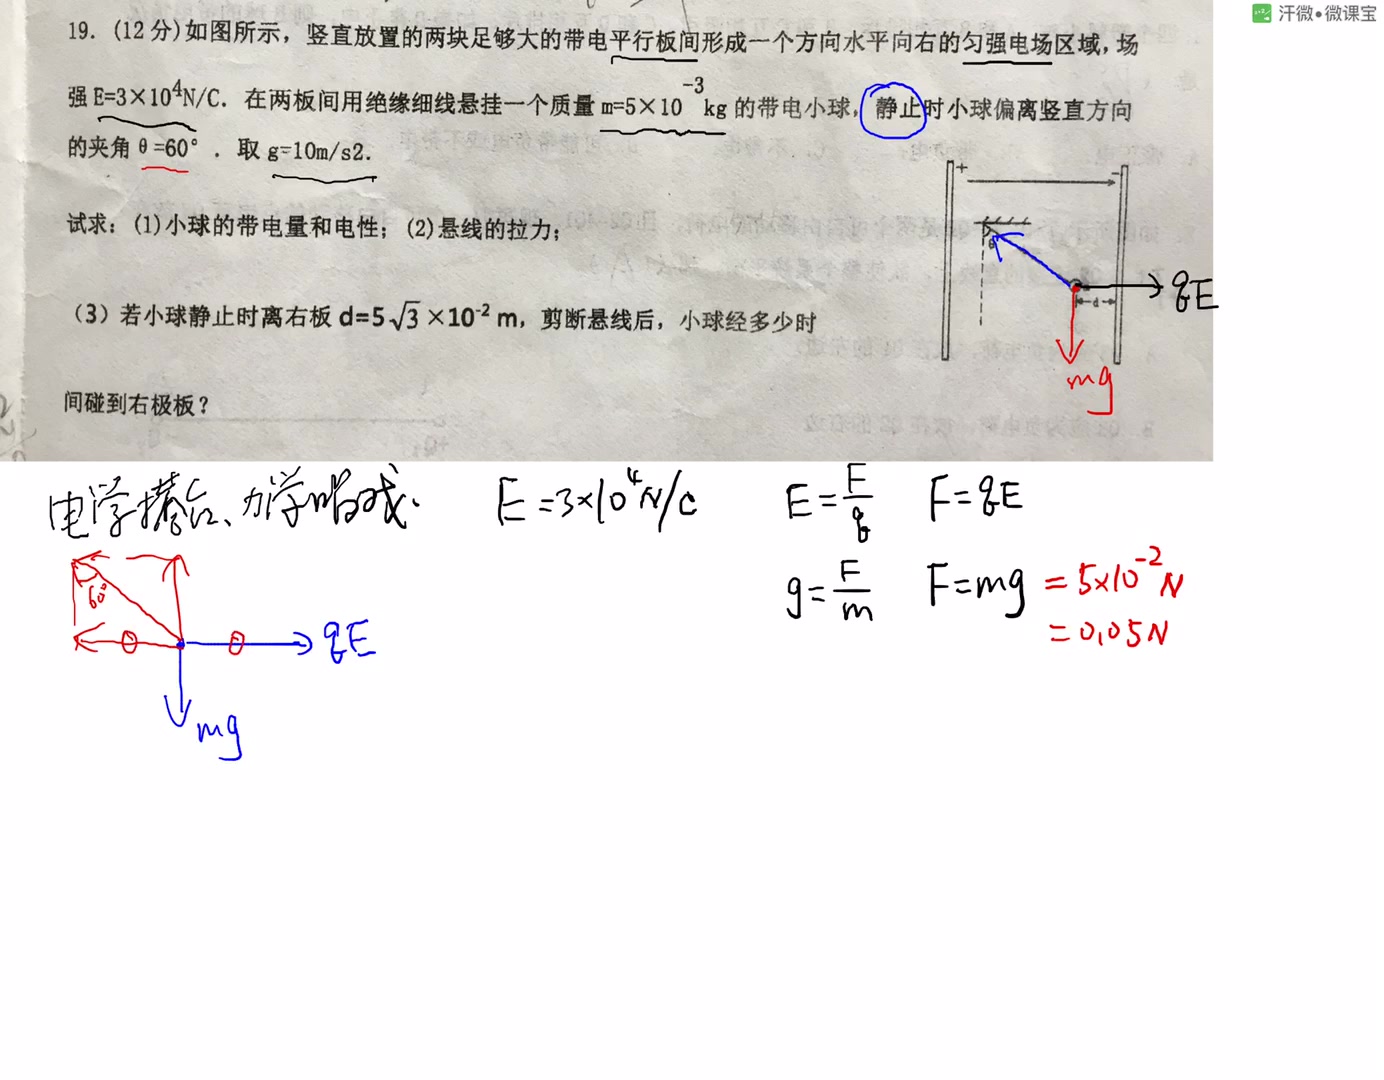 汗微•微课宝
19. (12分)如图所示，竖直放置的两块足够大的带电平行板间形成一个方向水平向右的匀强电场区域，场
强E=3×10⁴N/C. 在两板间用绝缘细线悬挂一个质量m=5×10⁻³kg的带电小球，静止时小球偏离竖直方向
的夹角θ=60°. 取g=10m/s2.
试求：(1)小球的带电量和电性；(2)悬线的拉力；
（3）若小球静止时离右板d=5√3×10⁻² m，剪断悬线后，小球经多少时
间碰到右极板？
+ -
θ
d
qE
mg
电学搭台、力学唱戏.
E=3×10⁴N/C
E=F/q F=qE
g=F/m F=mg =5×10⁻²N
=0.05N
60°
qE
mg